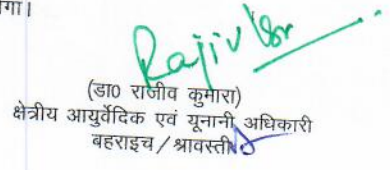 गा।
Rajiv Kr
(डा0 राजीव कुमारा)
क्षेत्रीय आयुर्वेदिक एवं यूनानी अधिकारी
बहराइच/श्रावस्ती